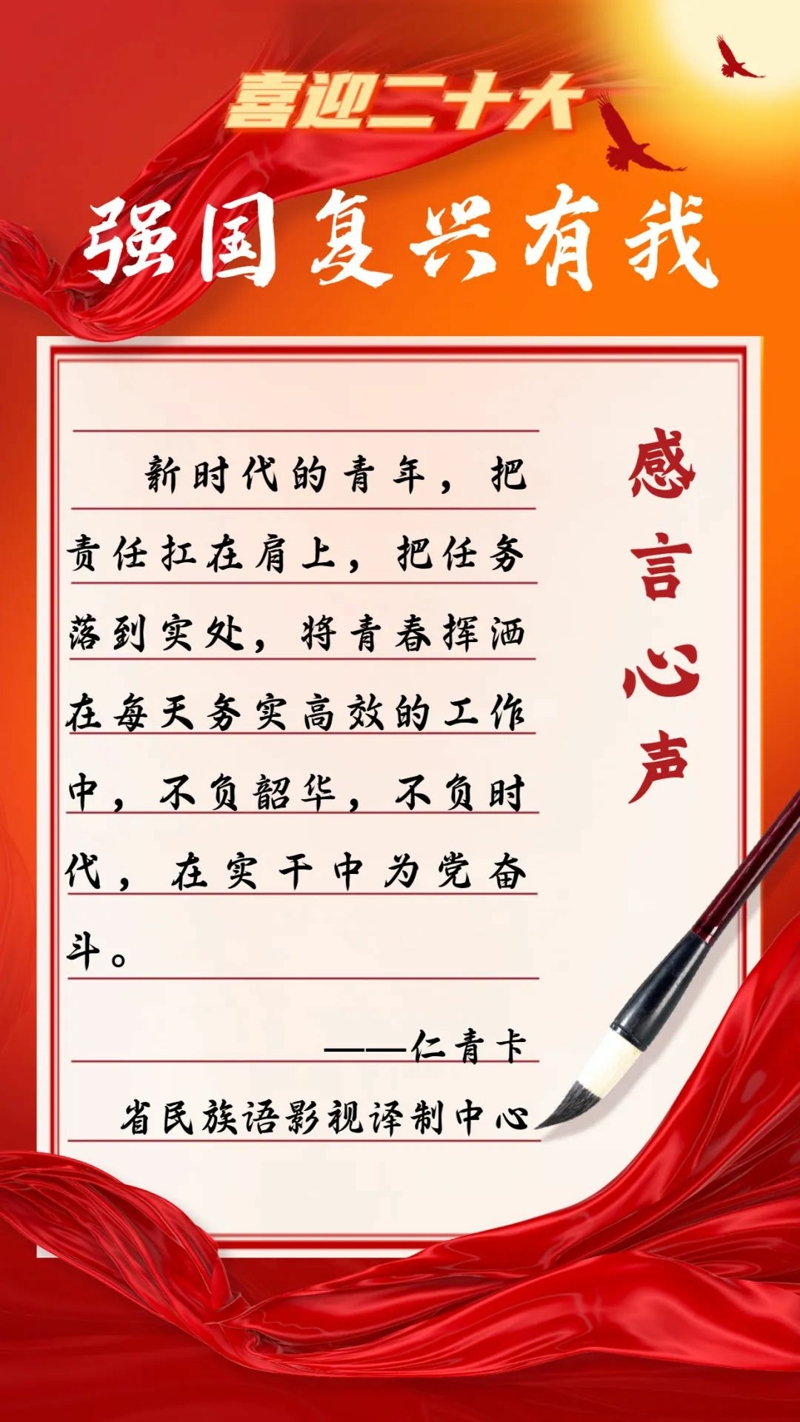 喜迎二十大
强国复兴有我
感言心声
新时代的青年，把
责任扛在肩上，把任务
落到实处，将青春挥洒
在每天务实高效的工作
中，不负韶华，不负时
代，在实干中为党奋
斗。
——仁青卡
省民族语影视译制中心